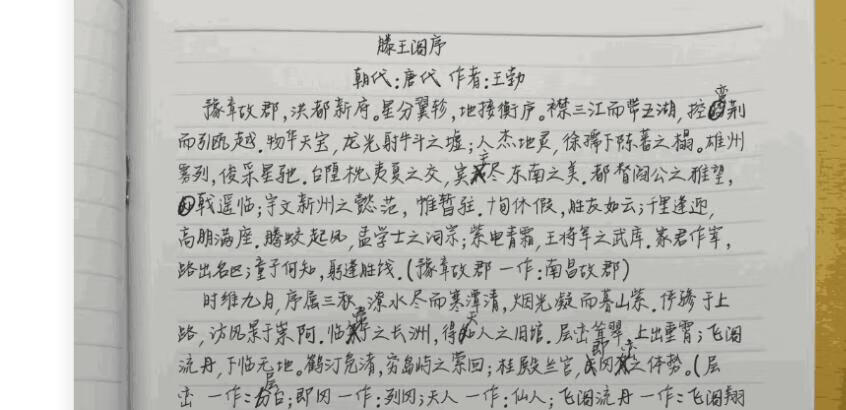 滕王阁序
朝代:唐代 作者:王勃
豫章故郡,洪都新府。星分翼轸,地接衡庐。襟三江而带五湖,控蛮荆
而引瓯越。物华天宝,龙光射牛斗之墟;人杰地灵,徐孺下陈蕃之榻。雄州
雾列,俊采星驰。台隍枕夷夏之交,宾主尽东南之美。都督阎公之雅望,
戟遥临;宇文新州之懿范,惟暂驻。十旬休假,胜友如云;千里逢迎,
高朋满座。腾蛟起凤,孟学士之词宗;紫电青霜,王将军之武库。家君作宰,
路出名区;童子何知,躬逢胜饯。(豫章故郡 一作:南昌故郡)
时维九月,序属三秋。潦水尽而寒潭清,烟光凝而暮山紫。俨骖于上
路,访风景于崇阿。临帝子之长洲,得天人之旧馆。层峦耸翠,上出重霄;飞阁
流丹,下临无地。鹤汀凫渚,穷岛屿之萦回;桂殿兰宫,即冈峦之体势。(层
峦 一作:层台;即冈 一作:列冈;天人 一作:仙人;飞阁流丹 一作:飞阁翔